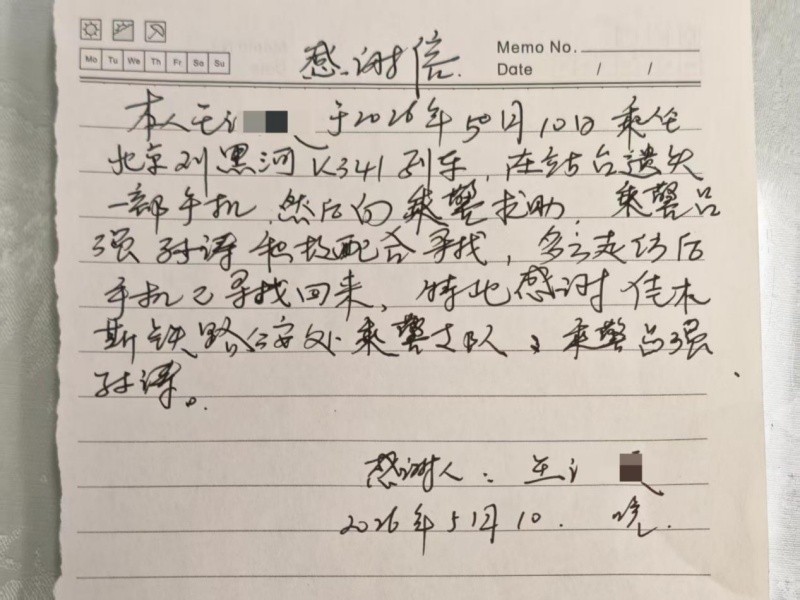 Mo Tu We Th Fr Sa Su
感谢信
Memo No.
Date / /
本人王 于2026年5月10日乘坐
北京到黑河K341列车,在站台遗失
一部手机,然后向乘警求助,乘警吕
强 孙涛积极配合寻找,多方走访后
手机已寻找回来,特此感谢佳木
斯铁路公安处乘警支队、乘警吕强
孙涛。
感谢人:王
2026年5月10.晚.